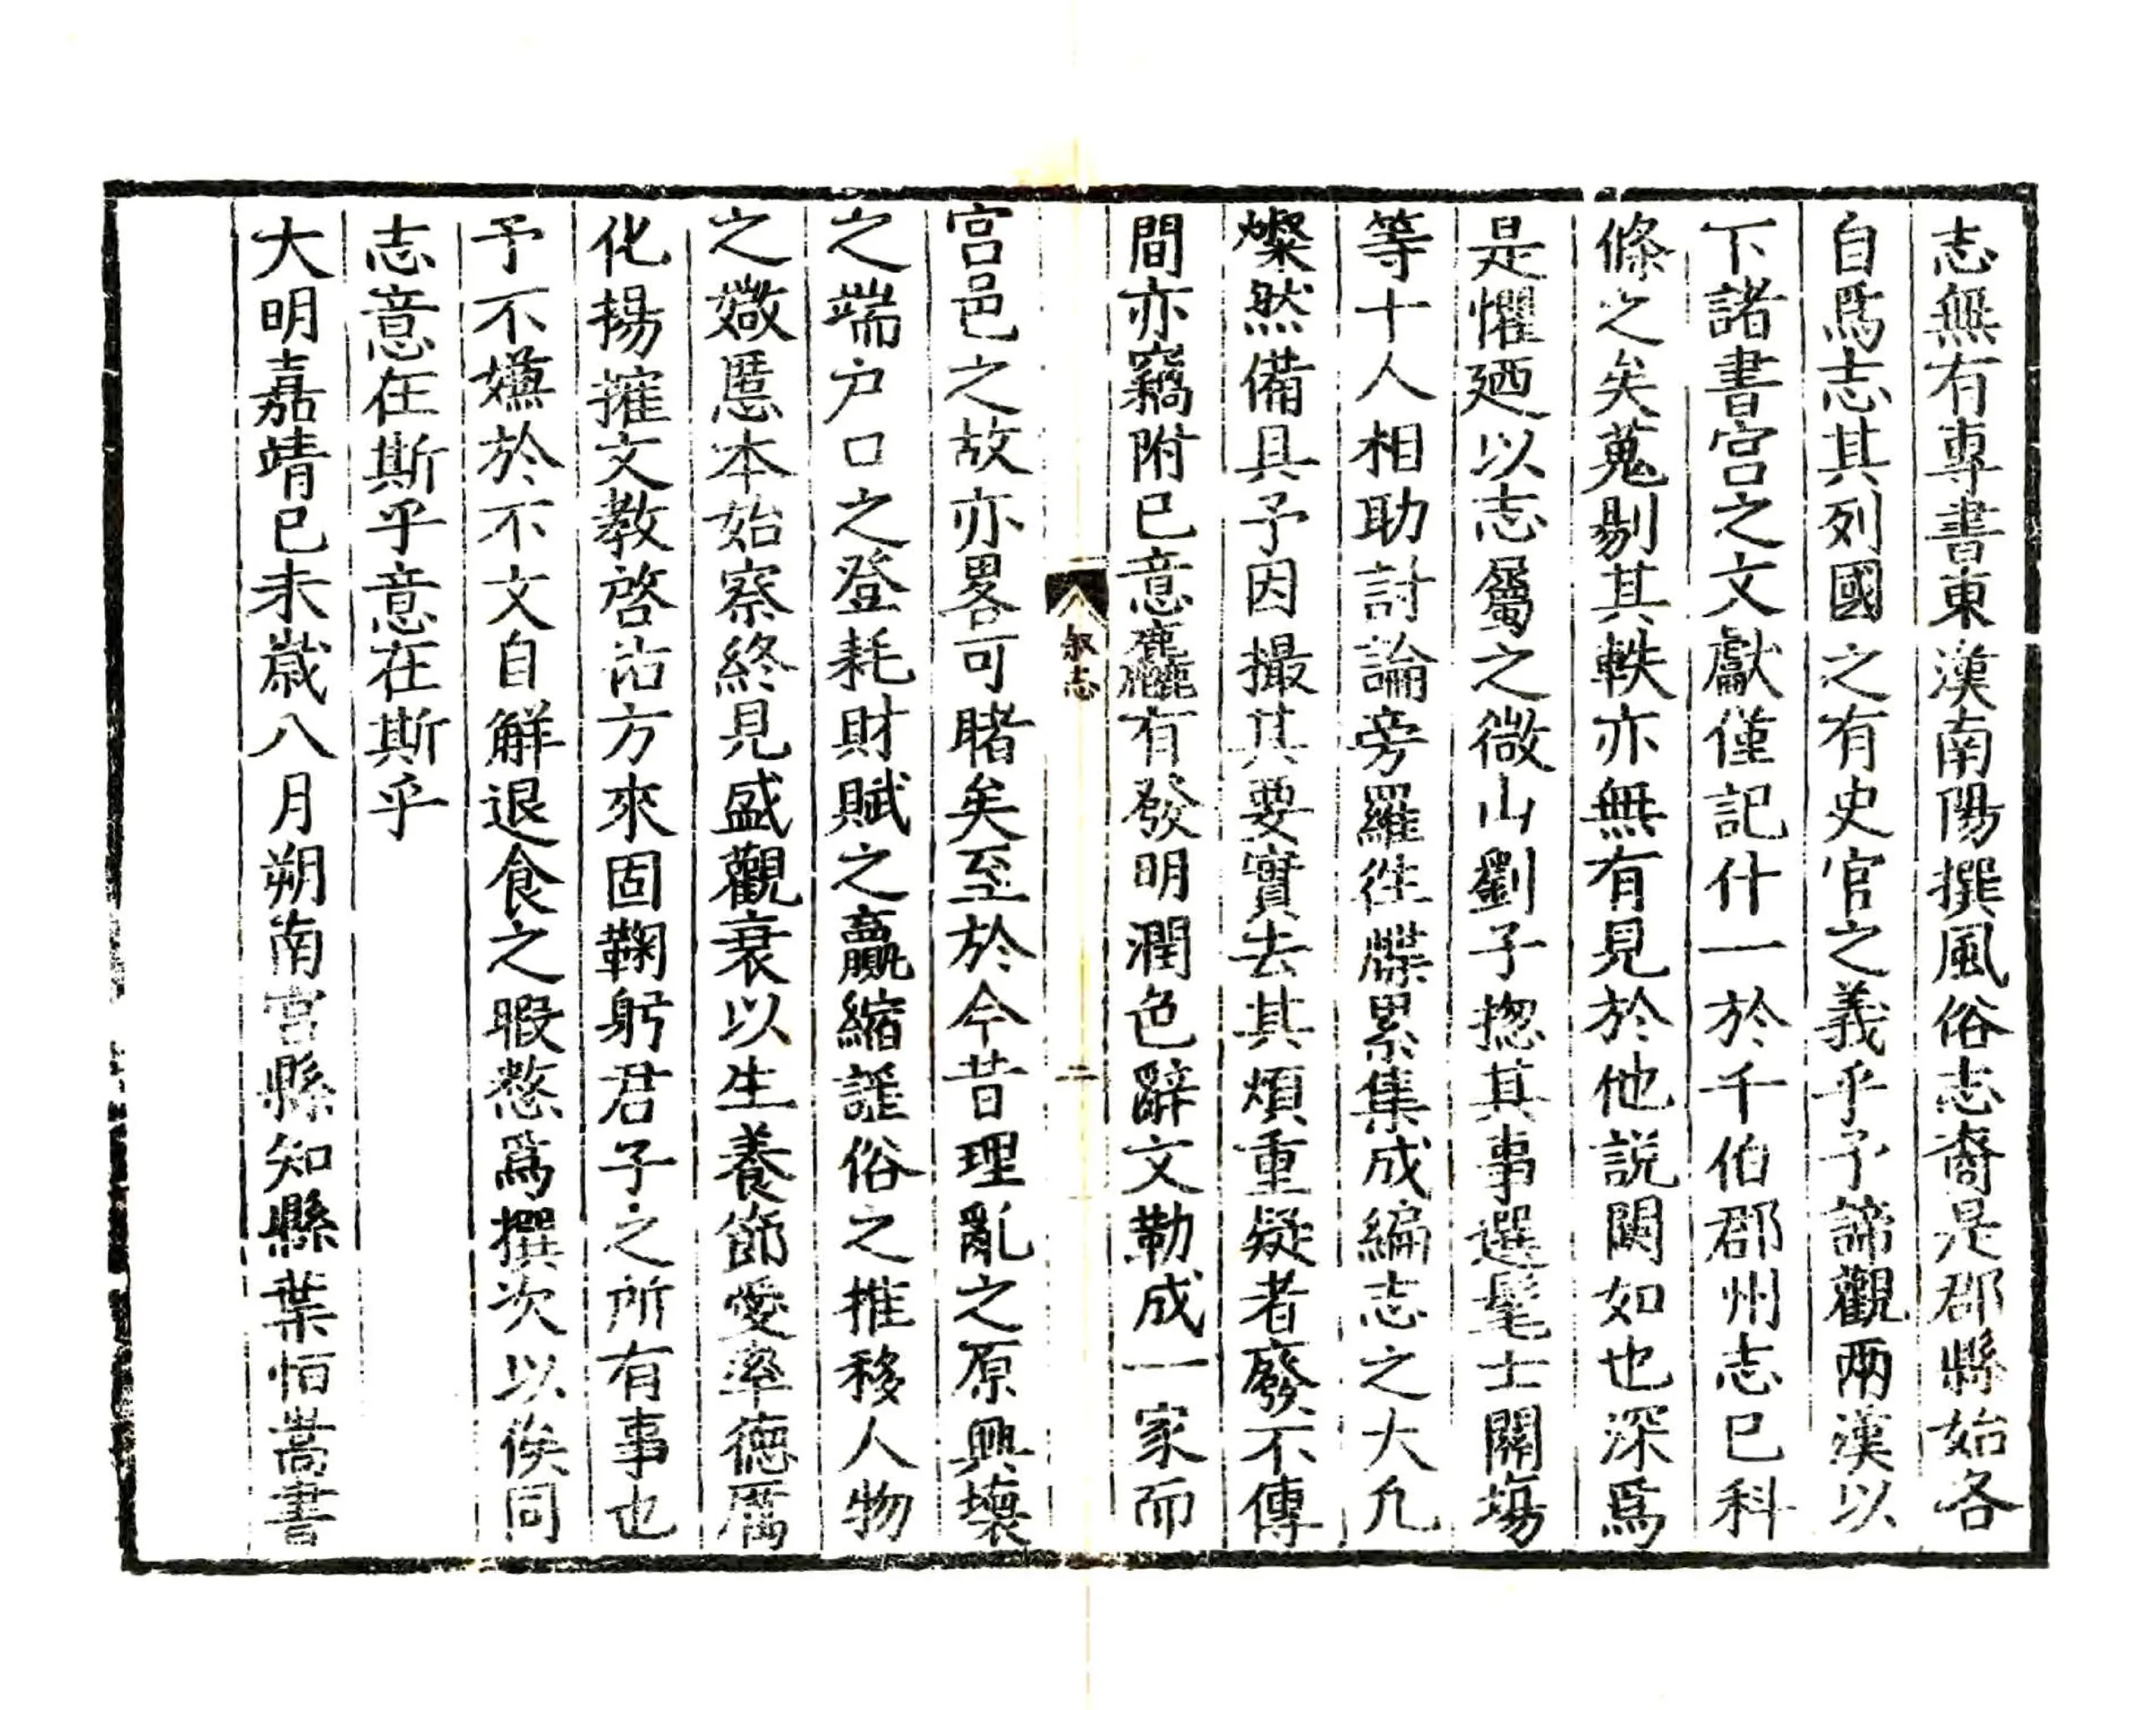 志無有專書東漢南陽撰風俗志裔是郡縣始各
自爲志其列國之有史官之義乎予諦觀兩漢以
下諸書宫之文獻僅記什一於千伯郡州志已科
條之矣蒐剔其軼亦無有見於他說闕如也深爲
是懼廼以志屬之微山劉子揔其事選髦士關塲
等十人相助討論旁羅徃牒累集成編志之大凡
燦然備具予因撮其要實去其煩重疑者廢不傳
間亦竊附已意麤有發明潤色辭文勒成一家而
叙志
二
宫邑之故亦畧可睹矣至於今昔理亂之原興壞
之端户口之登耗財賦之贏縮謡俗之推移人物
之媺慝本始察終見盛觀衰以生養節愛率德厲
化揚搉文教啓佑方來固鞠躬君子之所有事也
予不嫌於不文自解退食之暇憗爲撰次以俟同
志意在斯乎意在斯乎
大明嘉靖己未歲八月朔南宫縣知縣葉恒嵩書